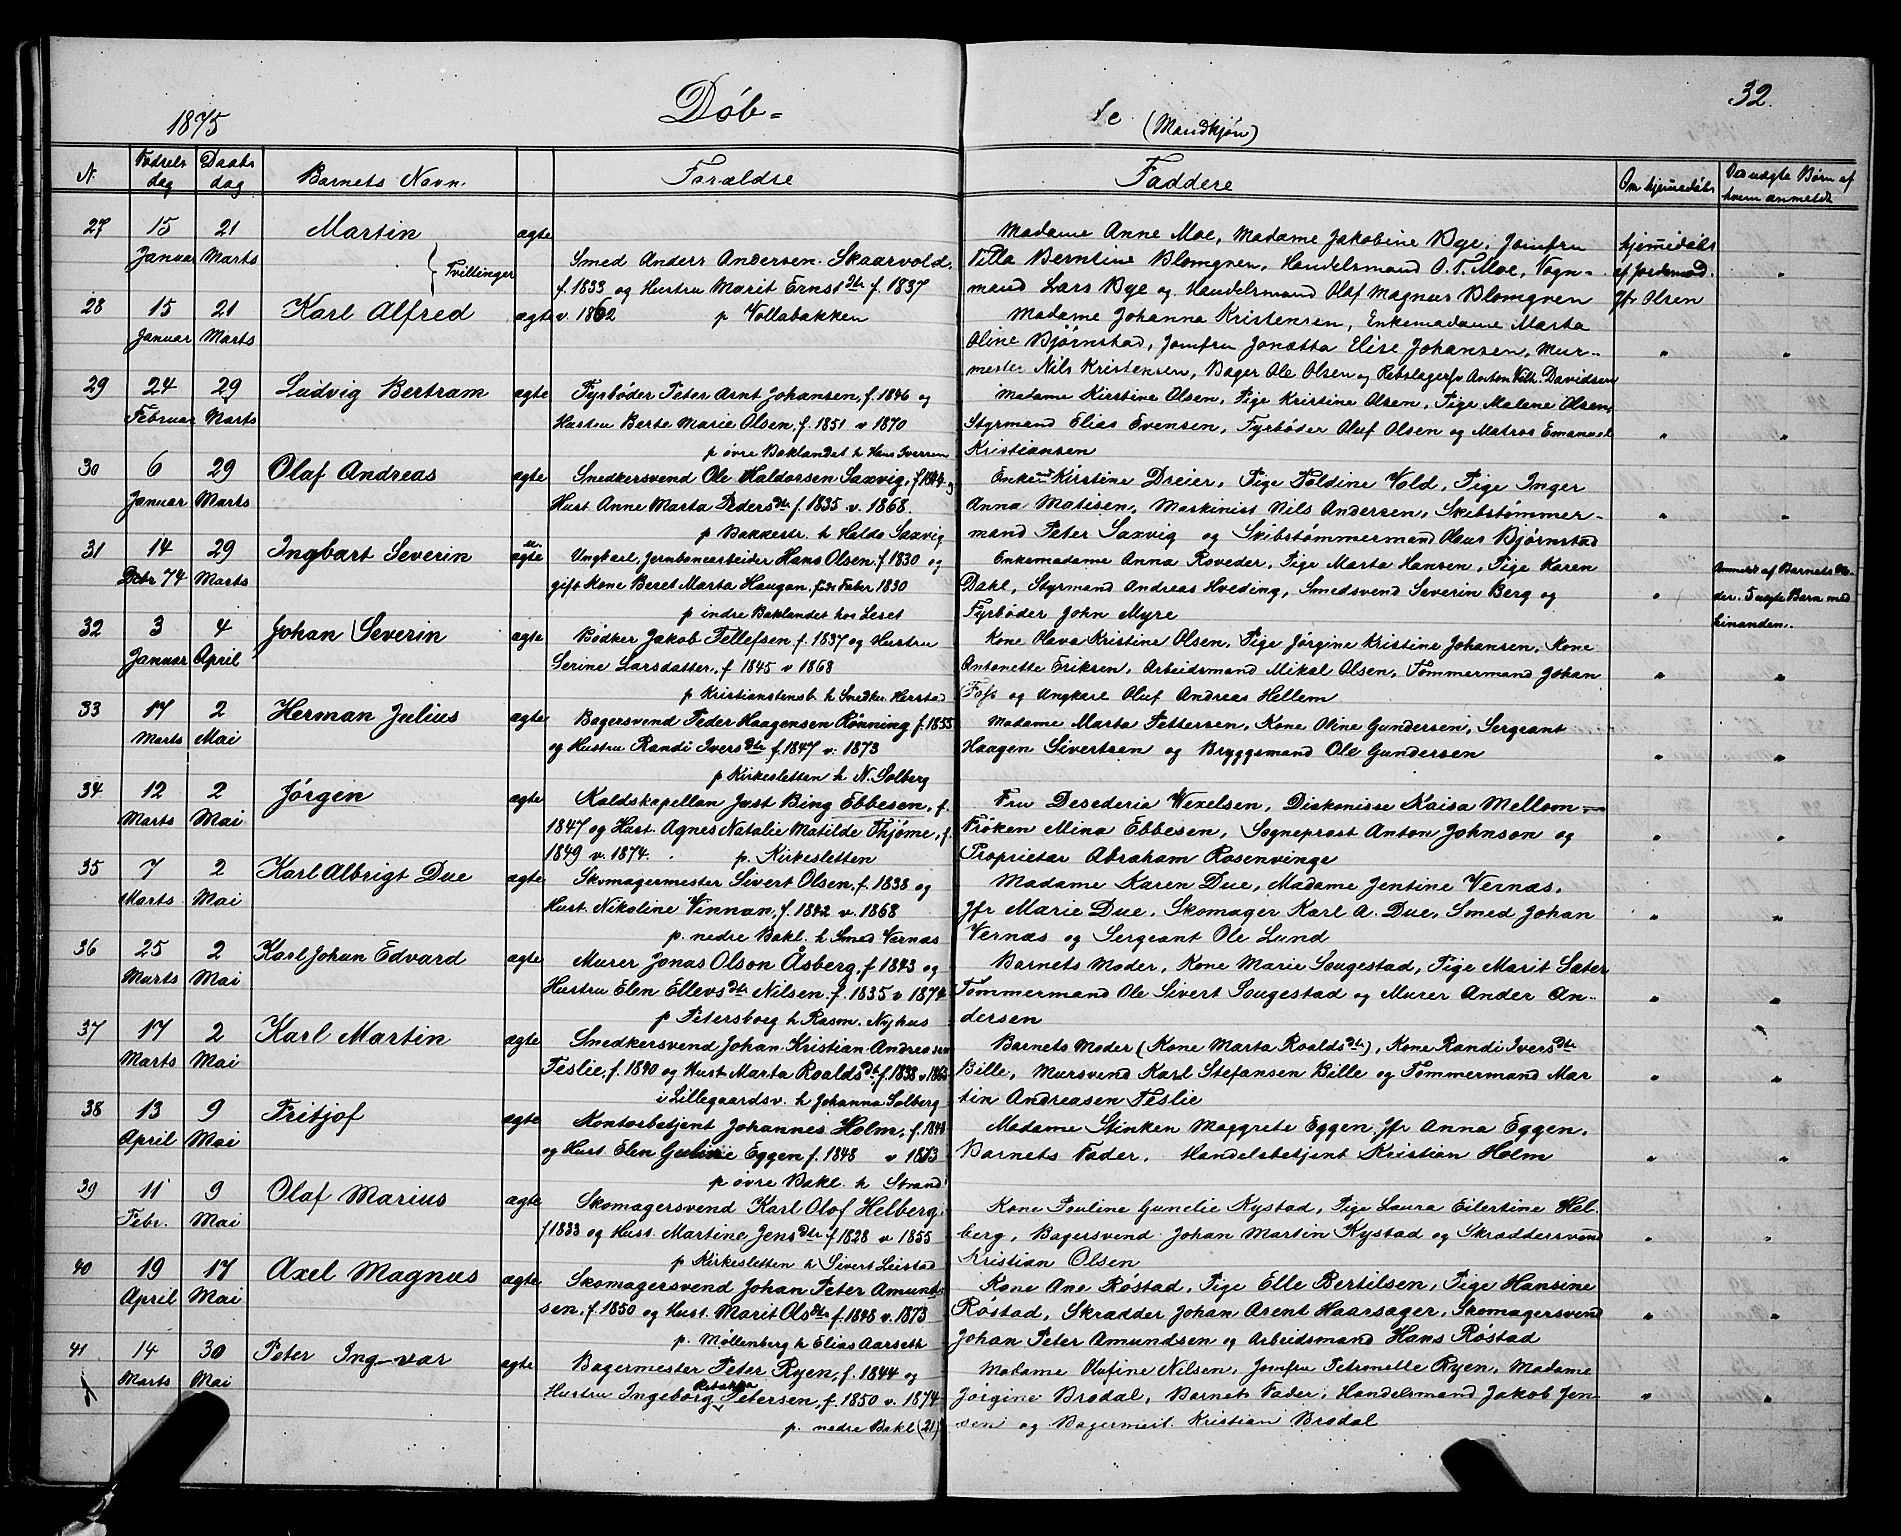 1875 Døb= se (Mandkjøn) 32.
N. Fødselsdag Daabsdag Barnets Navn Forældre Faddere Om hjemmedøbt Ved uægte Børn af hvem anmeldt
27 15 Januar 21 Marts Martin ægte
Madame Anne Moe, Madame Jakobine Bye, Jomfru
Tvillinger
Smed Anders Andersen Skaarvold,
f. 1833 og Hustru Marit Ernstdtr f. 1837
v. 1862 p Vollabakken
Berntine Blomgren, Handelsmand O. T. Moe, Vogn-
mand Lars Bye og Handelsmand Olaf Magnus Blomgren
hjemmedøbt
af Jordemod.
Jfr Olsen
28 15 Januar 21 Marts Karl Alfred ægte
Madame Johanna Kristensen, Enkemadame Marta
Oline Bjørnstad, Jomfru Jonætta Elise Johansen, Mur-
mester Nils Kristensen, Bager Ole Olsen og Rebslagersv Anton Vilh. Davidsen
29 24 Februar 29 Marts Ludvig Bertram ægte
Fyrbøder Peter Arnt Johansen, f. 1846 og
Hustru Berte Marie Olsen, f. 1851 v 1870
p øvre Baklandet h Hans Iversen
Madame Kirstine Olsen, Pige Kristine Olsen, Pige Malene Olsen,
Styrmand Elias Evensen, Fyrbøder Oluf Olsen og Matros Emanuel
Kristiansen
30 6 Januar 29 Marts Olaf Andreas ægte
Snedkersvend Ole Haldorsen Saxvig, f 1844 og
Hust. Anne Marta Pedersdtr f. 1835 v. 1868.
p Bakkestr. h Haldo Saxvig
Kirstine Dreier, Pige Foldine Vold, Pige Inger
Anna Matisen, Maskinist Nils Andersen, Skibstømmer-
mand Peter Saxvig og Skibstømmermand Olaus Bjørnstad
31 14 Decbr 74 29 Marts Ingbart Severin uægte
Ungkarl, Jernbanearbeider Hans Olsen, f 1830 og
gift Kone Beret Marta Haugan, født Faber 1830
p indre Baklandet hos Leset
Enkemadame Anna Roveder, Pige Marta Hansen, Pige Karen
Dahl, Styrmand Andreas Hveding, Smedsvend Severin Berg og
Fyrbøder John Myre
Anmeldt af Barnets Mo-
der. 5 uægte Barn med
hinanden.
32 3 Januar 4 April Johan Severin ægte
Bødker Jakob Tellefsen f. 1837 og Hustru
Serine Larsdatter, f 1845 v 1868
p Kristianstensb. h Snedker Herstad
Kone Olava Kristine Olsen, Pige Jørgine Kristine Johansen, Kone
Antonette Eriksen, Arbeidsmand Mikal Olsen, Tømmermand Johan
og Ungkarl Oluf Andreas Hellem
33 17 Marts 2 Mai Herman Julius ægte
Bagersvend Peder Haagensen Rønning f. 1855
og Hustru Randi Iversdtr f. 1847 v. 1873
p Kirkesletten h N. Solberg
Madame Marta Pettersen, Kone Oline Gundersen, Sergeant
Haagen Sivertsen og Bryggemand Ole Gundersen
34 12 Marts 2 Mai Jørgen ægte
Kaldskapellan Just Bing Ebbesen, f.
1847 og Hust. Agnes Natalie Matilde Thjøme, f.
1849 v. 1874. p. Kirkesletten
Fru Desederia Wexelsen, Diakonisse Kaisa Mellom
Frøken Mina Ebbesen, Sogneprest Anton Johnson og
Proprietær Abraham Rosenvinge
35 7 Marts 2 Mai Karl Albrigt Due ægte
Skomagermester Sivert Olsen, f. 1838 og
Hust. Nikoline Vinnan, f. 1842 v. 1868
p. nedre Bakl. h Smed Vernæs
Madame Karen Due, Madame Jentine Vernæs,
Jfr Marie Due, Skomager Karl A. Due, Smed Johan
Vernæs og Sergeant Ole Lund
36 25 Marts 2 Mai Karl Johan Edvard ægte
Murer Jonas Olson Åsberg, f. 1843 og
Hustru Elen Ellevsdtr Nilsen f. 1835 v 1874
p Petersborg h Rasm. Nyhus
Barnets Moder, Kone Marie Saugestad, Pige Marit Sæter
Tømmermand Ole Sivert Saugestad og Murer Ander An-
dersen
37 17 Marts 2 Mai Karl Martin ægte
Snedkersvend Johan Kristian Andreasen
Teslie, f. 1840 og Hust. Marta Roaldsdtr f. 1838
i Lillegaardsv. h Johanna Solberg
Barnets Moder (Kone Marta Roaldsdtr), Kone Randi Iversdtr
Bille, Mursvend Karl Stefansen Bille og Tømmermand Mar
tin Andreasen Teslie
38 13 April 9 Mai Fritjof ægte
Kontorbetjent Johannes Holm, f. 1848
og Hust. Elen Eggen f. 1848 v 1873
p øvre Bakl. h Strand
Madame Stinken Maggrete Eggen, Jfr Anna Eggen,
Barnets Fader, Handelsbetjent Kristian Holm
39 11 Febr. 9 Mai Olaf Marius ægte
Skomagersvend Karl Olof Helberg,
f 1833 og Hust. Martine Jensdtr f 1828 v 1855
p Kirkesletten h Sivert Leistad
Kone Pouline Gunelie Kystad, Pige Laura Eilertine Hel-
berg, Bagersvend Johan Martin Kystad og Skræddersvend
Kristian Olsen
40 19 April 17 Mai Axel Magnus ægte
Skomagersvend Johan Peter Amund-
sen, f. 1850 og Hust. Marit Olsdtr f. 1848 v. 1873
p. Møllenberg h Elias Aarseth
Kone Ane Røstad, Pige Elle Bertilsen, Pige Hansine
Røstad, Skrædder Johan Arent Haarsager, Skomagersvend
Johan Peter Amundsen og Arbeidsmand Hans Røstad
41 14 Marts 30 Mai Peter Ingvar ægte
Bagermester Peter Ryen, f. 1844 og
Hustru Ingeborg Rebekka Petersen, f. 1850 v. 1874
p. nedre Bakl (21)
Madame Olufine Nilsen, Jomfru Petronelle Ryen, Madame
Jørgine Brodal, Barnets Fader, Handelsmand Jakob Jen-
sen og Bagermest. Kristian Brodal